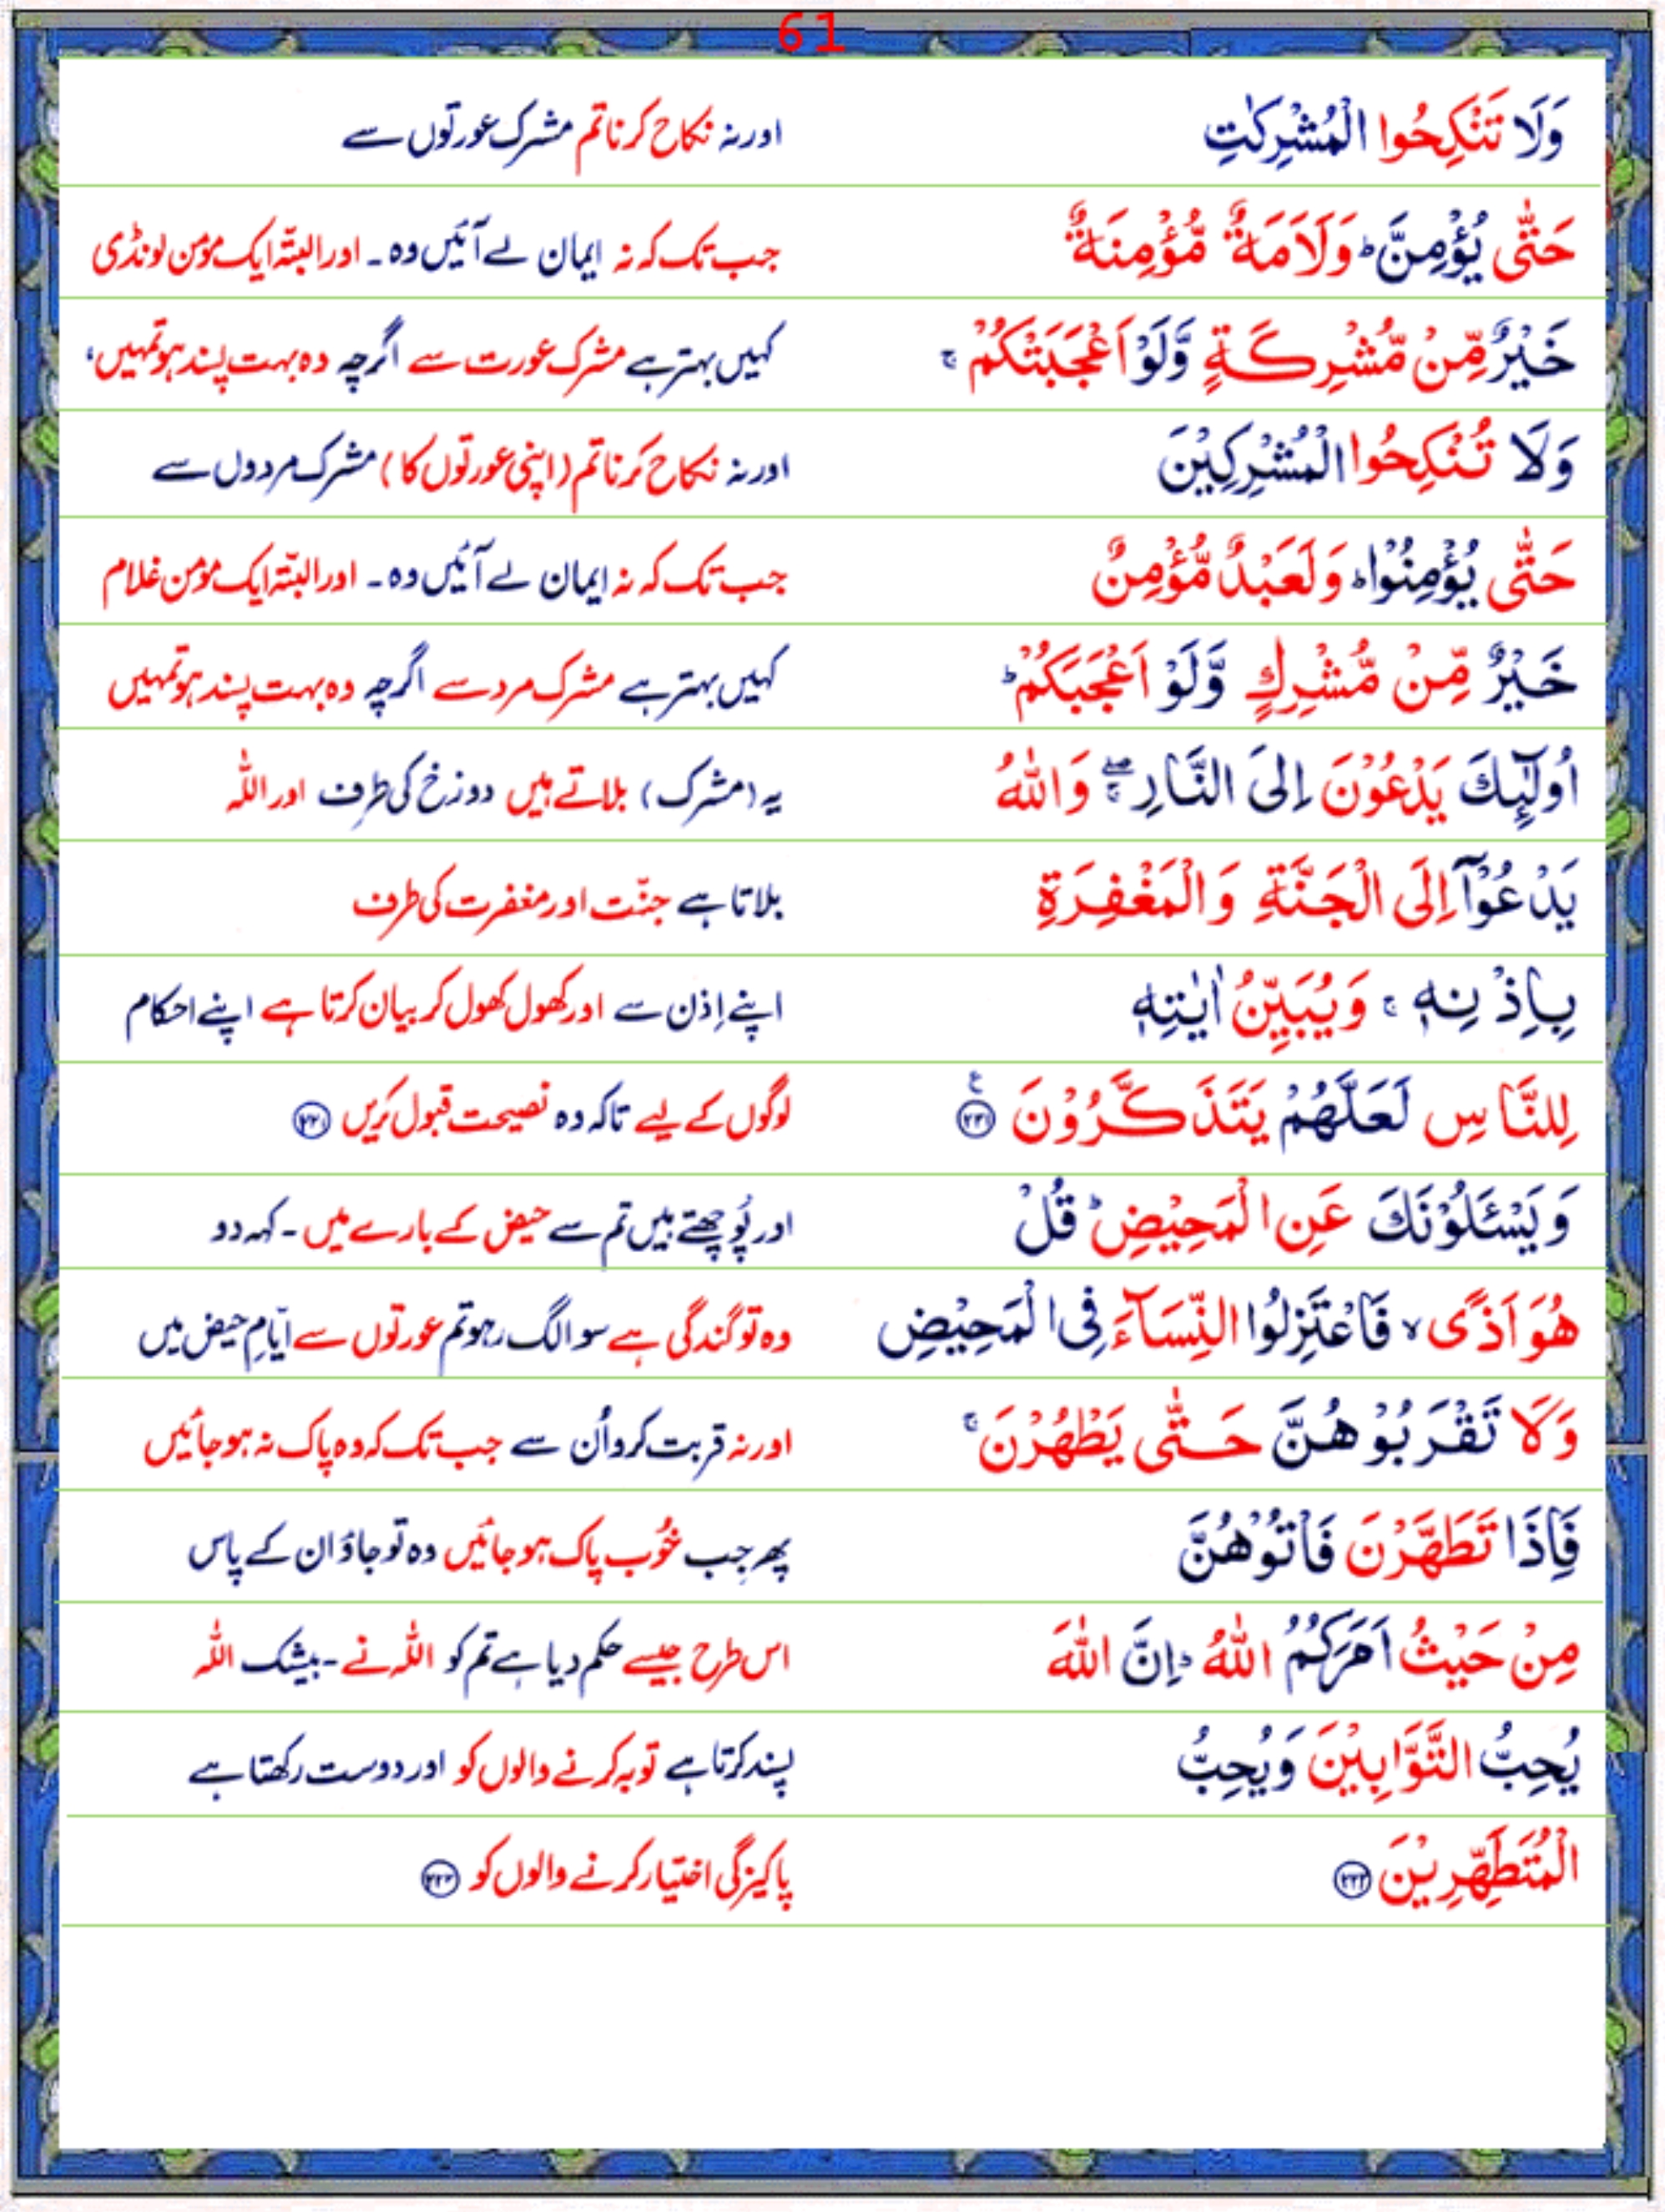 61
وَلَا تَنْكِحُوا الْمُشْرِكٰتِ اور نہ نکاح کرنا تم مشرک عورتوں سے
حَتّٰى يُؤْمِنَّ ؕ وَلَاَمَةٌ مُّؤْمِنَةٌ جب تک کہ نہ ایمان لے آئیں وہ ۔ اور البتّہ ایک مؤمن لونڈی
خَيْرٌ مِّنْ مُّشْرِكَةٍ وَّلَوْ اَعْجَبَتْكُمْ ۚ کہیں بہتر ہے مشرک عورت سے اگرچہ وہ بہت پسند ہو تمہیں،
وَلَا تُنْكِحُوا الْمُشْرِكِيْنَ اور نہ نکاح کرنا تم (اپنی عورتوں کا) مشرک مردوں سے
حَتّٰى يُؤْمِنُوْا ؕ وَلَعَبْدٌ مُّؤْمِنٌ جب تک کہ نہ ایمان لے آئیں وہ ۔ اور البتّہ ایک مؤمن غلام
خَيْرٌ مِّنْ مُّشْرِكٍ وَّلَوْ اَعْجَبَكُمْ ؕ کہیں بہتر ہے مشرک مرد سے اگرچہ وہ بہت پسند ہو تمہیں
اُولٰٓئِكَ يَدْعُوْنَ اِلَى النَّارِ ۖۚ وَاللّٰهُ یہ (مشرک) بلاتے ہیں دوزخ کی طرف اور اللّٰہ
يَدْعُوْٓا اِلَى الْجَنَّةِ وَالْمَغْفِرَةِ بلاتا ہے جنّت اور مغفرت کی طرف
بِاِذْنِهٖ ۚ وَيُبَيِّنُ اٰيٰتِهٖ اپنے اِذن سے اور کھول کھول کر بیان کرتا ہے اپنے احکام
لِلنَّاسِ لَعَلَّهُمْ يَتَذَكَّرُوْنَ ۲۲۱ ع لوگوں کے لیے تاکہ وہ نصیحت قبول کریں ۲۲۱
وَيَسْئَلُوْنَكَ عَنِ الْمَحِيْضِ ؕ قُلْ اور پُوچھتے ہیں تم سے حیض کے بارے میں ۔ کہہ دو
هُوَ اَذًى ۙ فَاعْتَزِلُوا النِّسَآءَ فِى الْمَحِيْضِ وہ تو گندگی ہے سو الگ رہو تم عورتوں سے ایّامِ حیض میں
وَلَا تَقْرَبُوْهُنَّ حَتّٰى يَطْهُرْنَ ۚ اور نہ قربت کرو اُن سے جب تک کہ وہ پاک نہ ہو جائیں
فَاِذَا تَطَهَّرْنَ فَاْتُوْهُنَّ پھر جب خُوب پاک ہو جائیں وہ تو جاؤ ان کے پاس
مِنْ حَيْثُ اَمَرَكُمُ اللّٰهُ ؕ اِنَّ اللّٰهَ اس طرح جیسے حکم دیا ہے تم کو اللّٰہ نے ۔ بیشک اللّٰہ
يُحِبُّ التَّوَّابِيْنَ وَيُحِبُّ پسند کرتا ہے توبہ کرنے والوں کو اور دوست رکھتا ہے
الْمُتَطَهِّرِيْنَ ۲۲۲ پاکیزگی اختیار کرنے والوں کو ۲۲۲